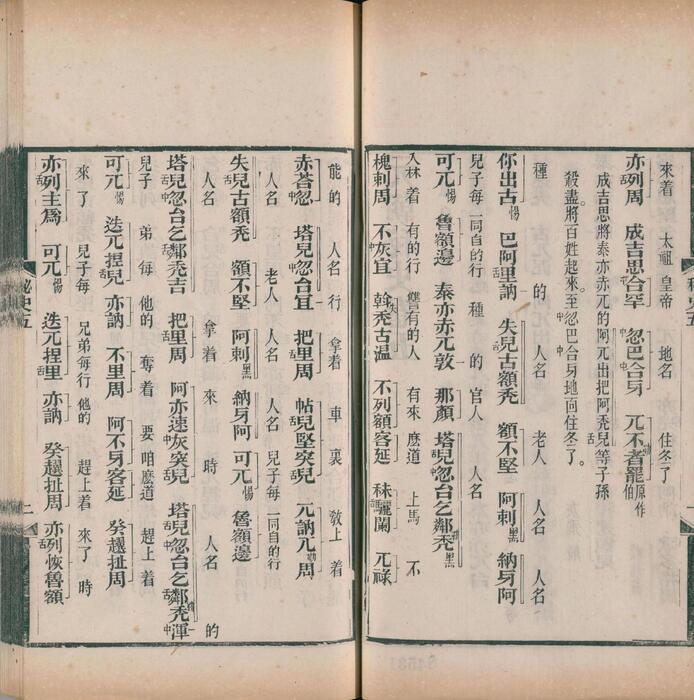 來着 太祖皇帝 地名 住冬了
亦列周 成吉思合罕 忽巴合牙 兀不者罷 原作伯
成吉思將泰亦赤兀的阿兀出把阿禿兒等子孫
殺盡將百姓起來至忽巴合牙地面住冬了
種 的 人名 老人 人名 人名
你出古惕 巴阿里訥 失兒古額禿 額不堅 阿剌黑 納牙阿
兒子每一同自的行 種 的 官人 人名
可兀惕 魯額邊 泰亦赤兀敦 那顏 塔兒忽台乞鄰禿黑
入林着 有的行 讐有的人 有來 麽道 上馬 不
槐剌周 不灰宜 斡禿古溫 不列額客延 秣驪闌 兀祿
能的 人名行 拿着 車裏 教上着
赤荅忽 塔兒忽台宜 把里周 帖兒堅突兒 兀訥兀周
人名 老人 人名 人名 兒子每 一同自的行
失兒古額禿 額不堅 阿剌黑 納牙阿 可兀惕 魯額邊
人名 拿着 來 時 人名 的
塔兒忽台乞鄰禿吉 把里周 阿亦速灰突兒 塔兒忽台乞鄰禿渾
兒子 弟每 他的 奪着 要 咱麽道 趕上着
可兀惕 迭兀捏兒 亦訥 不里周 阿不牙客延 癸趲扯周
來了 兒子每 兄弟每行 他的 趕上着 來了 時
亦列主爲 可兀惕 迭兀捏里 亦訥 癸趲扯周 亦列恢魯額
秘史五
二